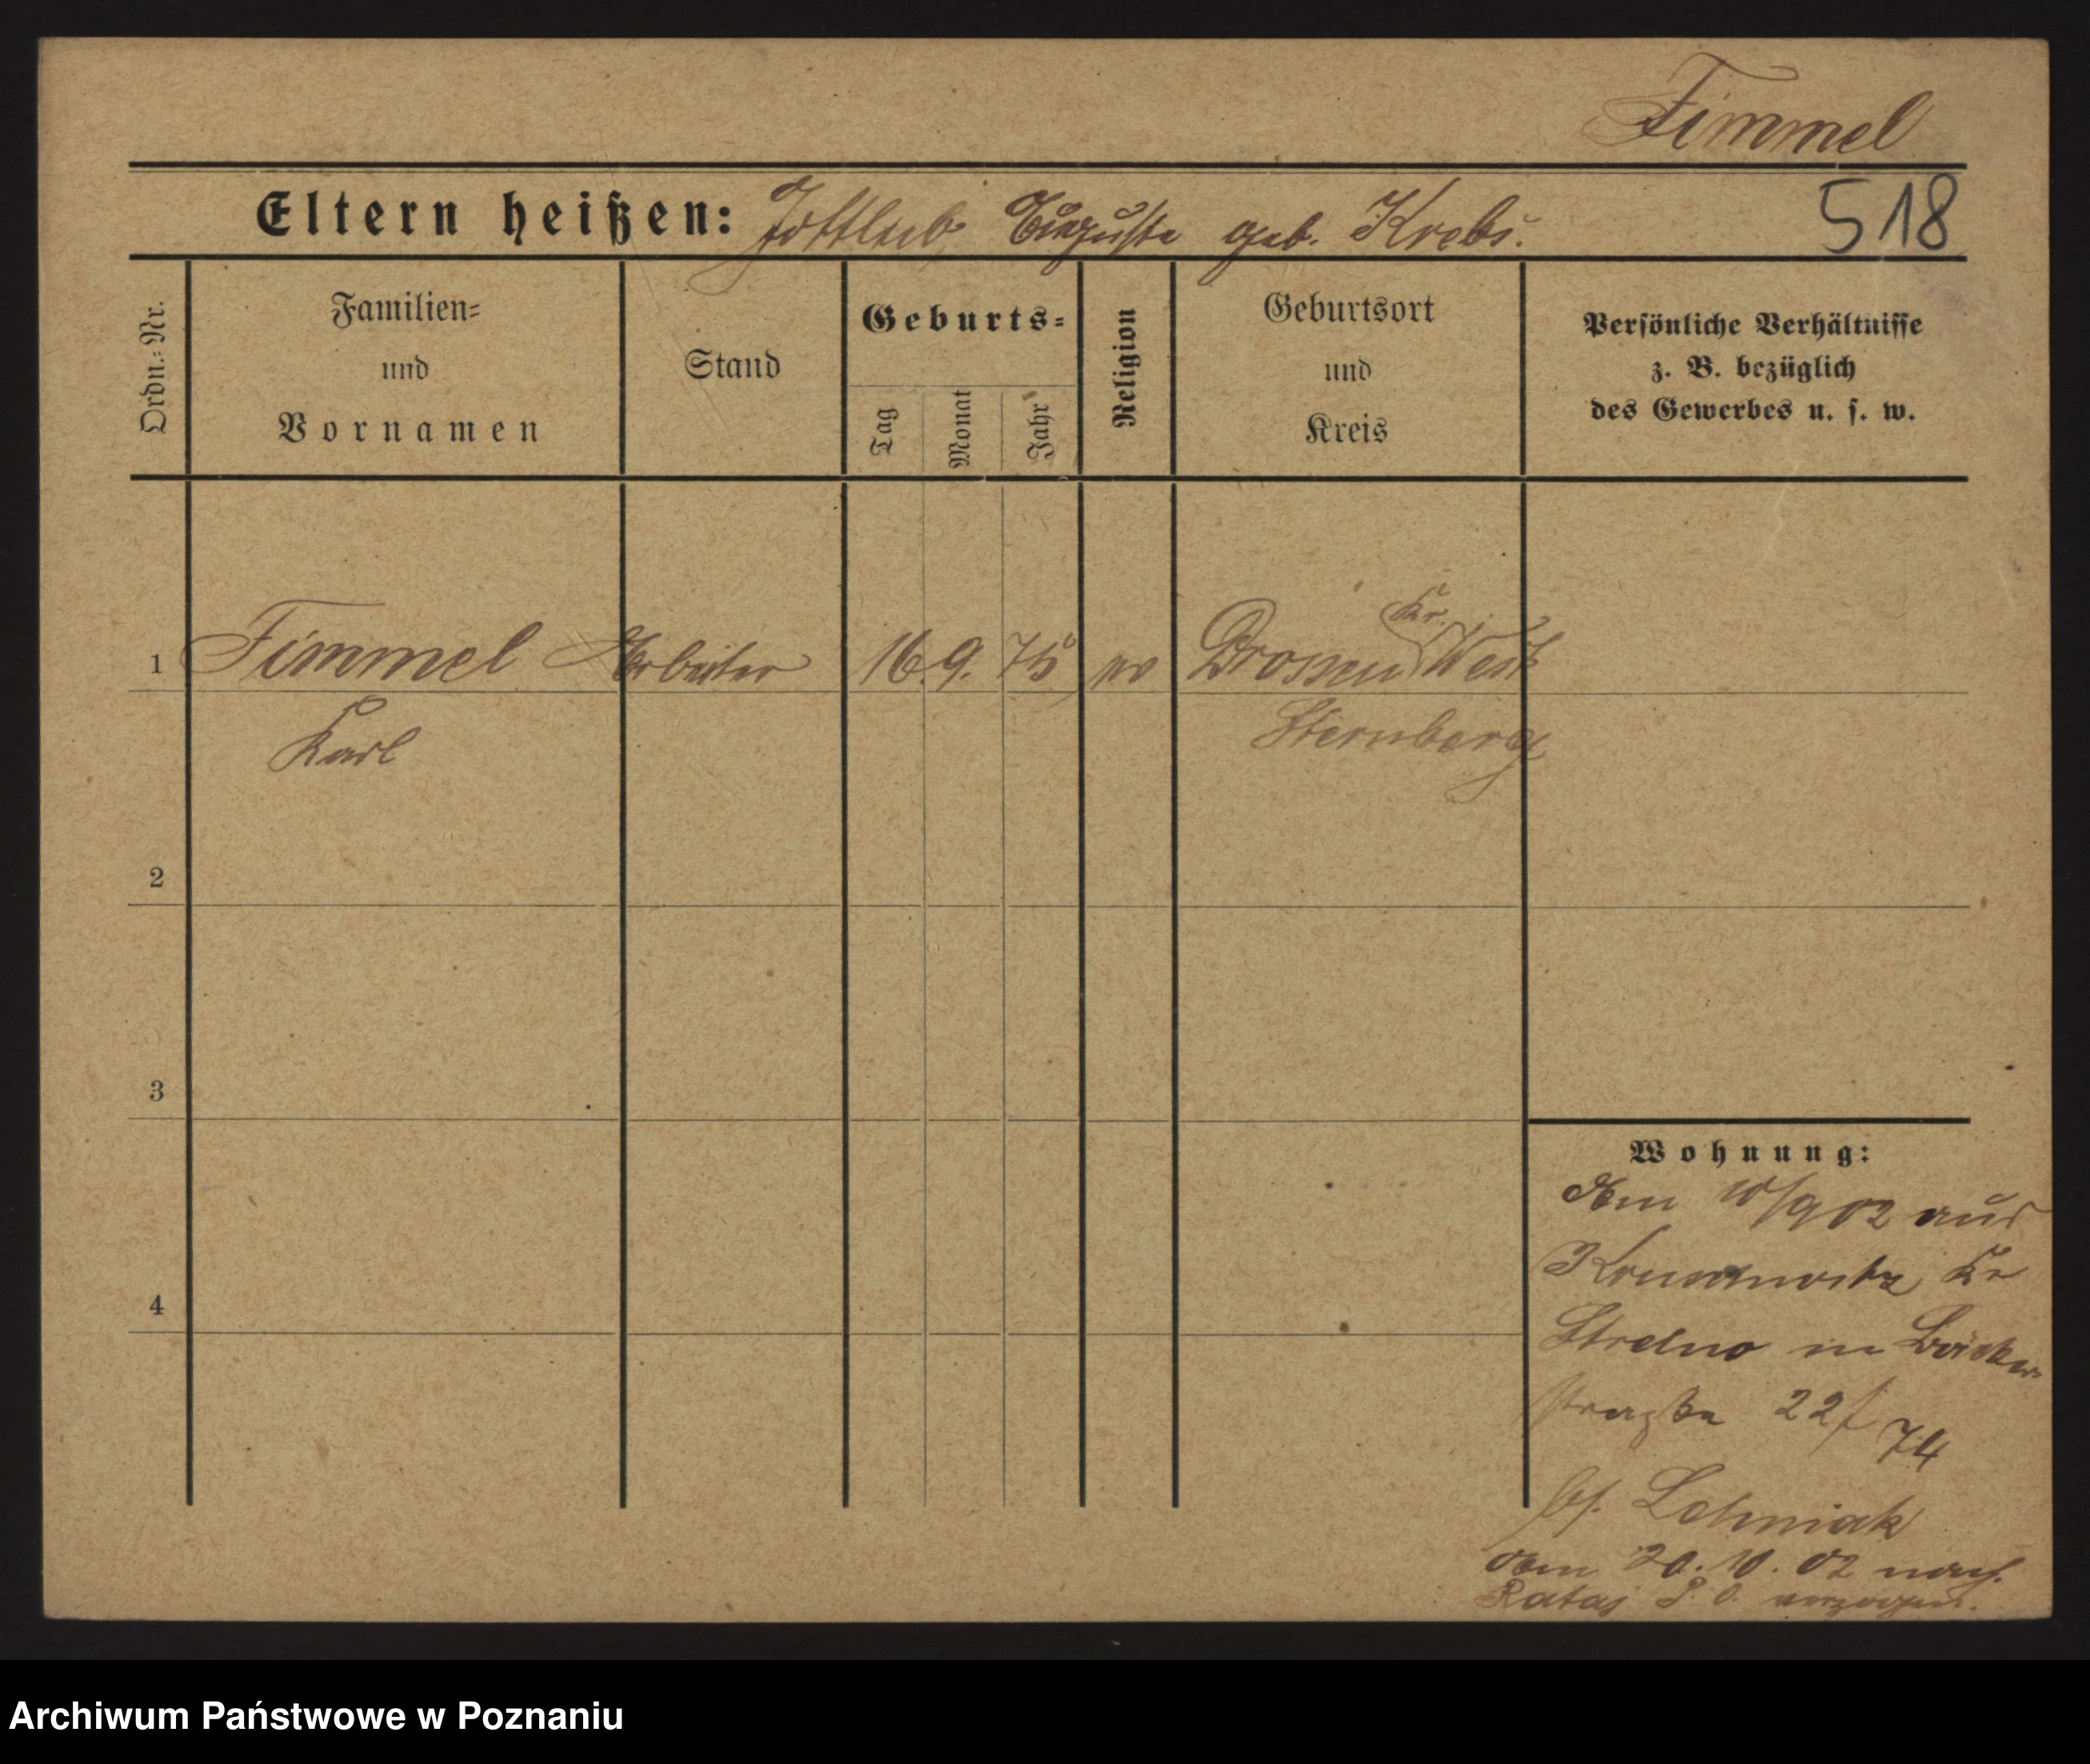 Fimmel
Eltern heißen: Gottlieb, Auguste geb. Krebs.
518
Ordn.-Nr.
Familien-
und
Vornamen
Stand
Geburts-
Tag
Monat
Jahr
Religion
Geburtsort
und
Kreis
Persönliche Verhältnisse
z. B. bezüglich
des Gewerbes u. s. w.
1 Fimmel Arbeiter 16. 9. 75 ev Drossen Kr. West
Karl Sternberg
2
3
4
Wohnung:
Am 10/9 02 aus
Kr
Strelno in Bäcker
straße 22/
74
bf. Lehniak
Am 20. 10. 02 nach
Rataj P. O. verzogen.
Archiwum Państwowe w Poznaniu